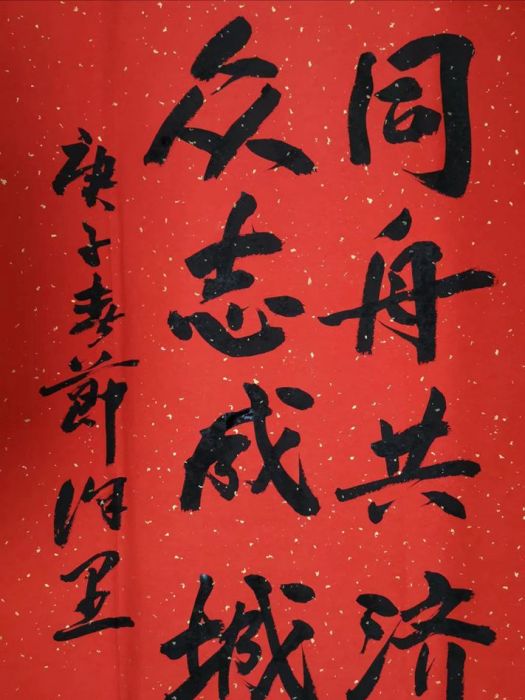 同舟共济
众志成城
庚子春節